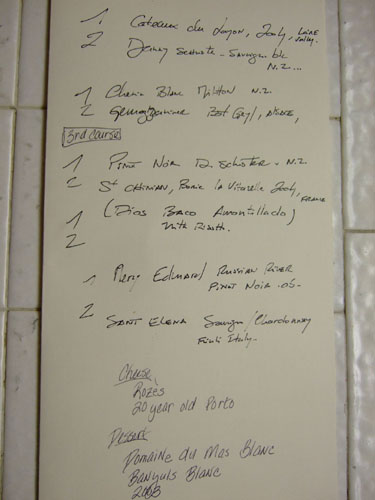 1 Coteaux du Layon, 2004, Loire Valley.
2 Daniel Schuster - Sauvignon blc
N.Z...
1 Chenin Blanc Milton N.Z.
2 Gewurztraminer Bott Geyl, Alsace,
3rd Course
1 Pinot Noir D. Schuster - N.Z.
2 St Chinian, Borie la Vitarèle 2004, France
1 (Dios Baco Amontillado)
2 with Broth.
1 Perry Edward Russian River
Pinot Noir .05.
2 Sant Elena Sauvign/Chardonnay
Friuli Italy.
Cheese
Rozès
20 year old Porto
Dessert
Domaine du Mas Blanc
Banyuls Blanc
2003